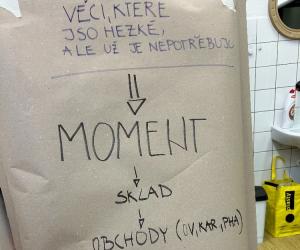 VĚCI, KTERÉ
JSO HEZKÉ,
ALE UŽ JE NEPOTŘEBUJU
MOMENT
SKLAD
OBCHODY (OV, KAR, PHA)